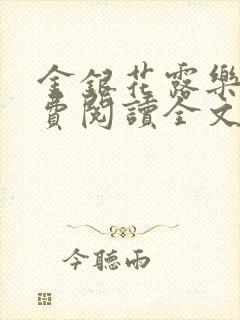 金銀花露樂
費閱讀全文
今聽雨